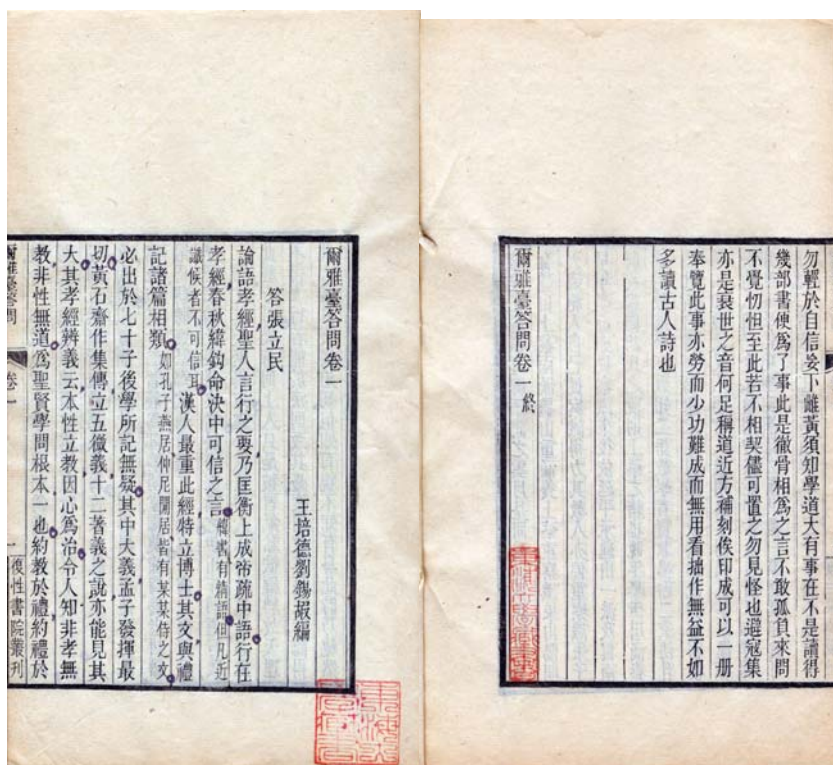 勿輕於自信妄下雌黃須知學道大有事在不是讀得
幾部書便爲了事此是徹骨相爲之言不敢孤負來問
不覺忉怛至此若不相契儘可置之勿見怪也避寇集
亦是衰世之音何足稱道近方補刻俟印成可以一册
奉覽此事亦勞而少功難成而無用看拙作無益不如
多讀古人詩也
爾雅臺答問卷一終
爾雅臺答問卷一
王培德劉錫嘏編
答張立民
論語孝經聖人言行之要乃匡衡上成帝疏中語行在
孝經春秋緯鉤命決中可信之言緯書有精語但凡近
讖候者不可信耳漢人最重此經特立博士其文與禮
記諸篇相類如孔子燕居仲尼閒居皆有某某侍之文
必出於七十子後學所記無疑其中大義孟子發揮最
切黃石齋作集傳立五微義十二著義之說亦能見其
大其孝經辨義云本性立教因心爲治令人知非孝無
教非性無道爲聖賢學問根本一也約教於禮約禮於
爾雅臺答問
卷一
一
復性書院叢刊